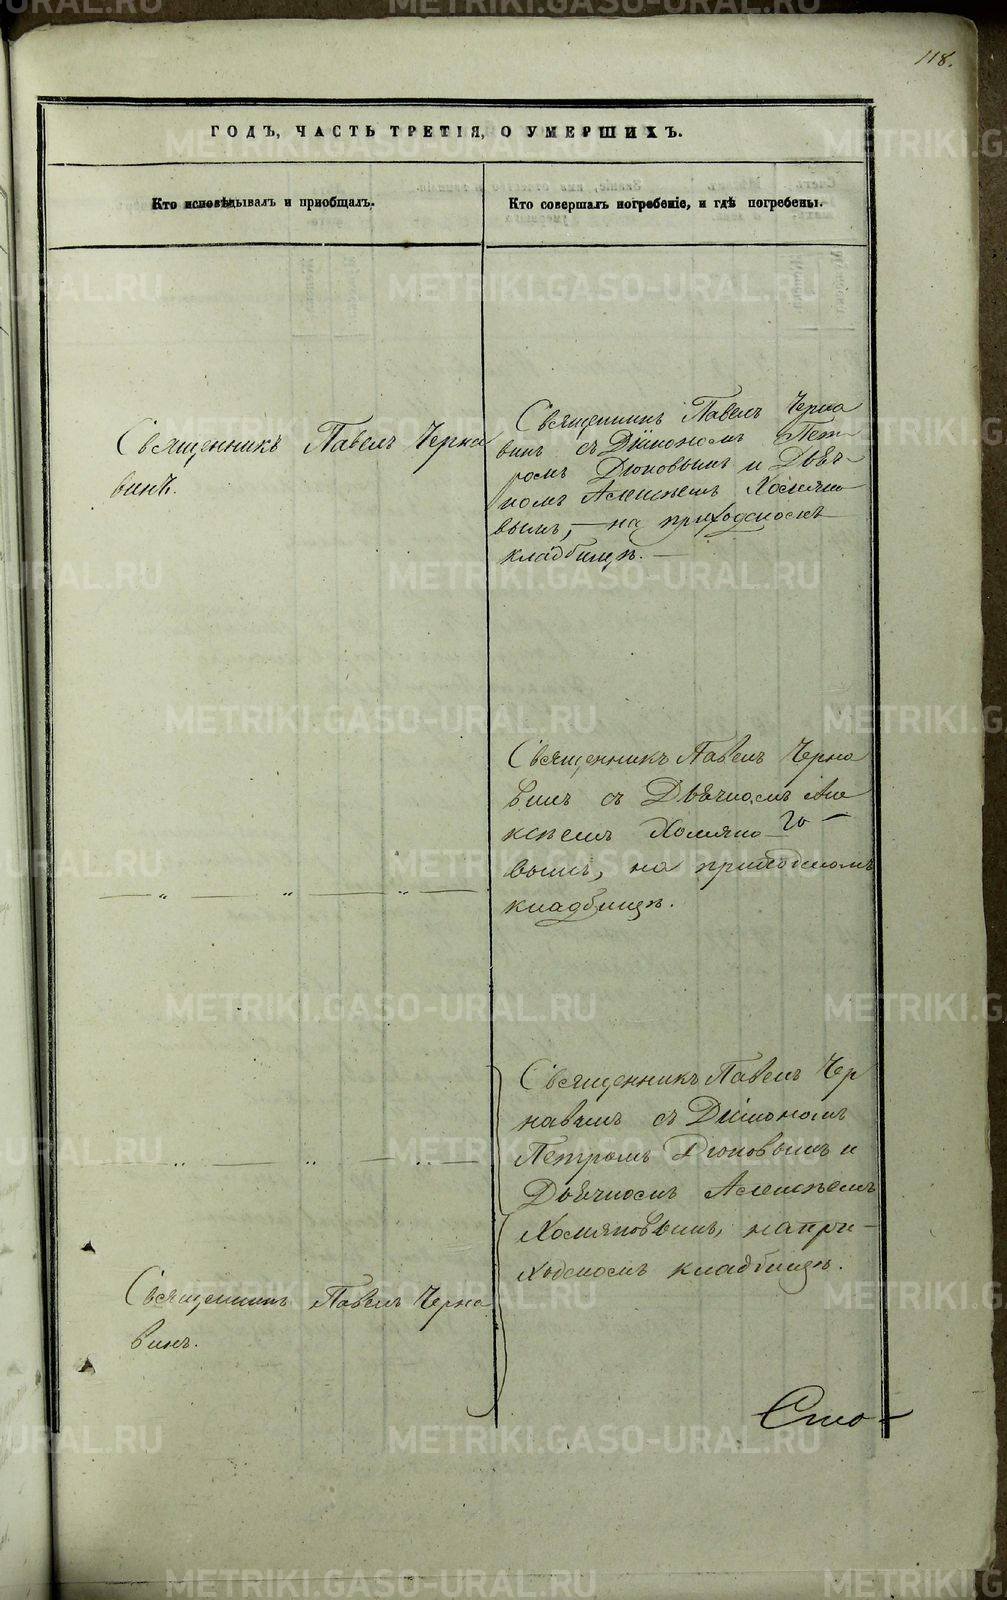 118.
ГОДЪ, ЧАСТЬ ТРЕТІЯ, О УМЕРШИХЪ.
Кто исповѣдывалъ и приобщалъ.
Кто совершалъ погребеніе, и гдѣ погребены.
Священникъ Павелъ Черна
винъ.
Священникъ Павелъ Черна
винъ съ Діакономъ Пет-
ромъ Дюковымъ и Дьяч-
комъ Алексѣемъ Хомяко
вымъ, — на приходскомъ
кладбищѣ. —
Священникъ Павелъ Черна
винъ съ Дьячкомъ Але
ксѣемъ Хомяко
вымъ, на приходскомъ
кладбищѣ.
го —
— „ — „ — „ —
Священникъ Павелъ Чер
навинъ съ Діакономъ
Петромъ Дюковымъ и
Дьячкомъ Алексѣемъ
Хомяковымъ, на при-
ходскомъ кладбищѣ.
— „ — „ — „ —
Священникъ Павелъ Черна
винъ.
Сто —
METRIKI.GASO-URAL.RU